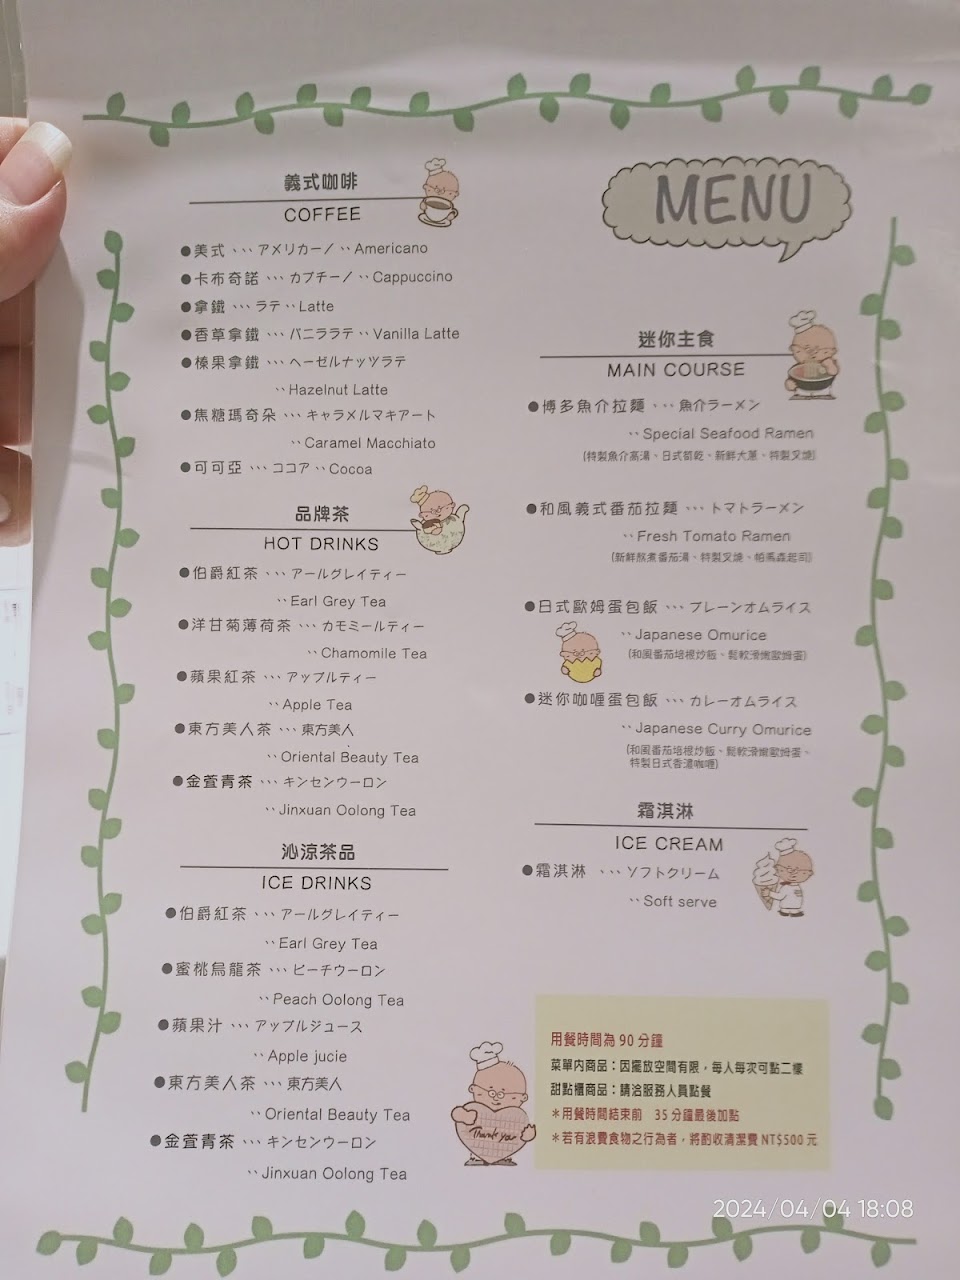 義式咖啡
COFFEE
●美式 ··· アメリカーノ ··Americano
●卡布奇諾 ··· カプチーノ ··Cappuccino
●拿鐵 ··· ラテ ··Latte
●香草拿鐵 ··· バニララテ ··Vanilla Latte
●榛果拿鐵 ··· ヘーゼルナッツラテ
··Hazelnut Latte
●焦糖瑪奇朵 ··· キャラメルマキアート
··Caramel Macchiato
●可可亞 ··· ココア ··Cocoa
品牌茶
HOT DRINKS
●伯爵紅茶 ··· アールグレイティー
··Earl Grey Tea
●洋甘菊薄荷茶 ··· カモミールティー
··Chamomile Tea
●蘋果紅茶 ··· アップルティー
··Apple Tea
●東方美人茶 ··· 東方美人
··Oriental Beauty Tea
●金萱青茶 ··· キンセンウーロン
··Jinxuan Oolong Tea
沁涼茶品
ICE DRINKS
●伯爵紅茶 ··· アールグレイティー
··Earl Grey Tea
●蜜桃烏龍茶 ··· ピーチウーロン
··Peach Oolong Tea
●蘋果汁 ··· アップルジュース
··Apple jucie
●東方美人茶 ··· 東方美人
··Oriental Beauty Tea
●金萱青茶 ··· キンセンウーロン
··Jinxuan Oolong Tea
Thank you
MENU
迷你主食
MAIN COURSE
●博多魚介拉麵 ··· 魚介ラーメン
··Special Seafood Ramen
(特製魚介高湯、日式筍乾、新鮮大蔥、特製叉燒)
●和風義式番茄拉麵 ··· トマトラーメン
··Fresh Tomato Ramen
(新鮮熬煮番茄湯、特製叉燒、帕馬森起司)
●日式歐姆蛋包飯 ··· プレーンオムライス
··Japanese Omurice
(和風番茄培根炒飯、鬆軟滑嫩歐姆蛋)
●迷你咖喱蛋包飯 ··· カレーオムライス
··Japanese Curry Omurice
(和風番茄培根炒飯、鬆軟滑嫩歐姆蛋、
特製日式香濃咖喱)
霜淇淋
ICE CREAM
●霜淇淋 ··· ソフトクリーム
··Soft serve
用餐時間為 90 分鐘
菜單內商品：因擺放空間有限，每人每次可點二樣
甜點櫃商品：請洽服務人員點餐
＊用餐時間結束前 35 分鐘最後加點
＊若有浪費食物之行為者，將酌收清潔費 NT$500 元
2024/04/04 18:08